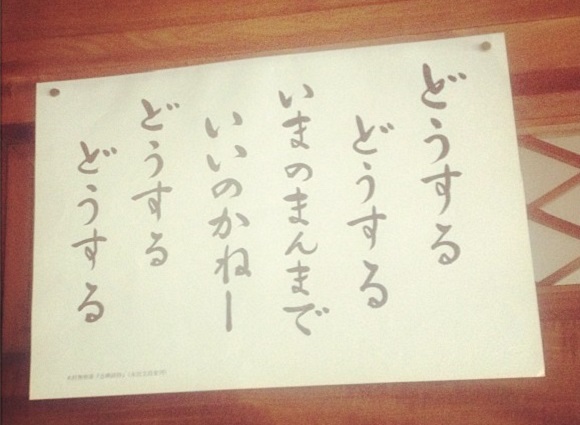 どうする
どうする
いまのまんまで
いいのかねー
どうする
どうする